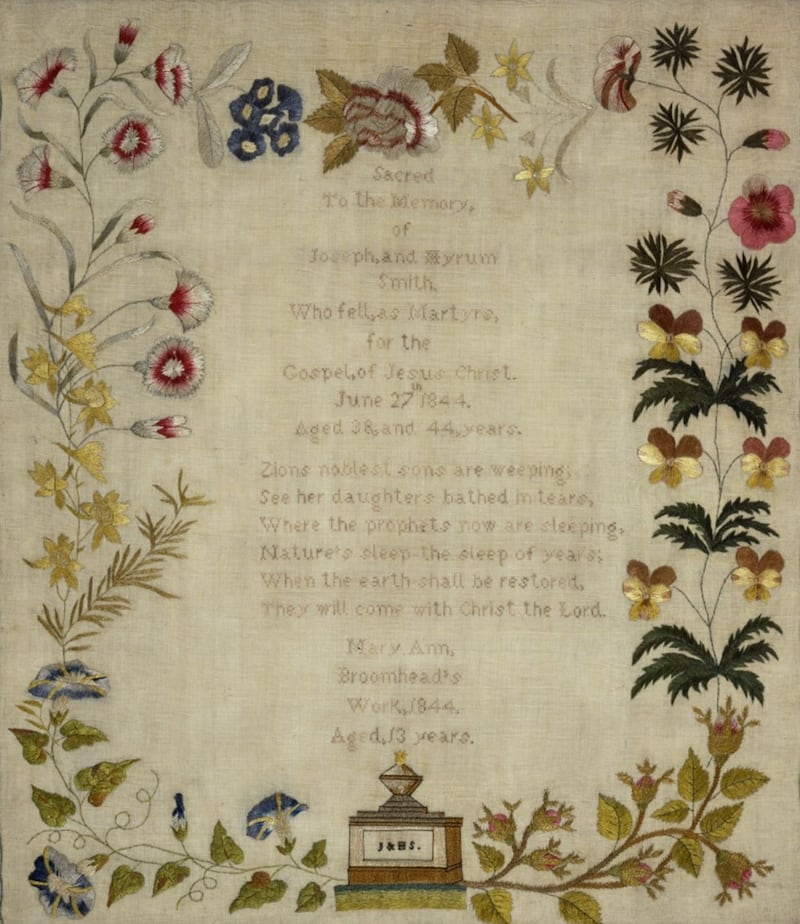 Sacred
To the Memory,
of
Joseph,and Hyrum
Smith,
Who fell,as Martyrs,
for the
Gospel,of Jesus Christ.
June 27th 1844.
Aged 38,and 44,years.
Zions noblest sons are weeping;
See her daughters bathed in tears,
Where the prophets now are sleeping,
Nature's sleep-the sleep of years;
When the earth shall be restored,
They will come with Christ the Lord.
Mary Ann,
Broomhead's
Work,1844.
Aged,13 years.
J&HS.